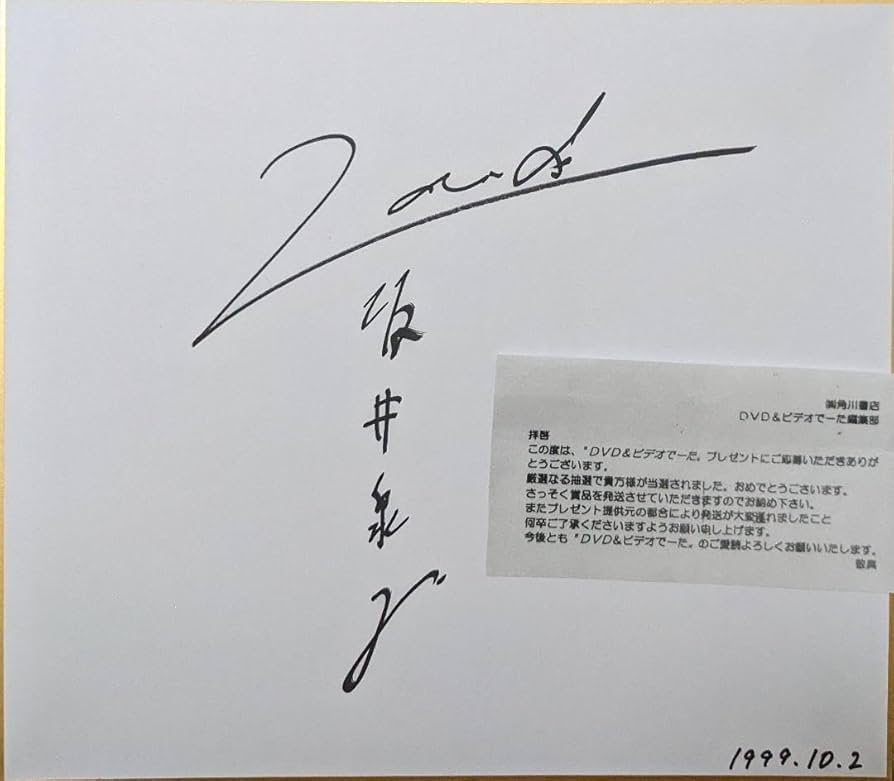 Zard
坂井泉水
㈱角川書店
DVD&ビデオでーた編集部
拝啓
この度は、"DVD&ビデオでーた〟プレゼントにご応募いただきありが
とうございます。
厳選なる抽選で貴方様が当選されました。おめでとうございます。
さっそく賞品を発送させていただきますのでお納め下さい。
またプレゼント提供元の都合により発送が大変遅れましたこと
何卒ご了承くださいますようお願い申し上げます。
今後とも"DVD&ビデオでーた〟のご愛読よろしくお願いいたします。
敬具
1999.10.2